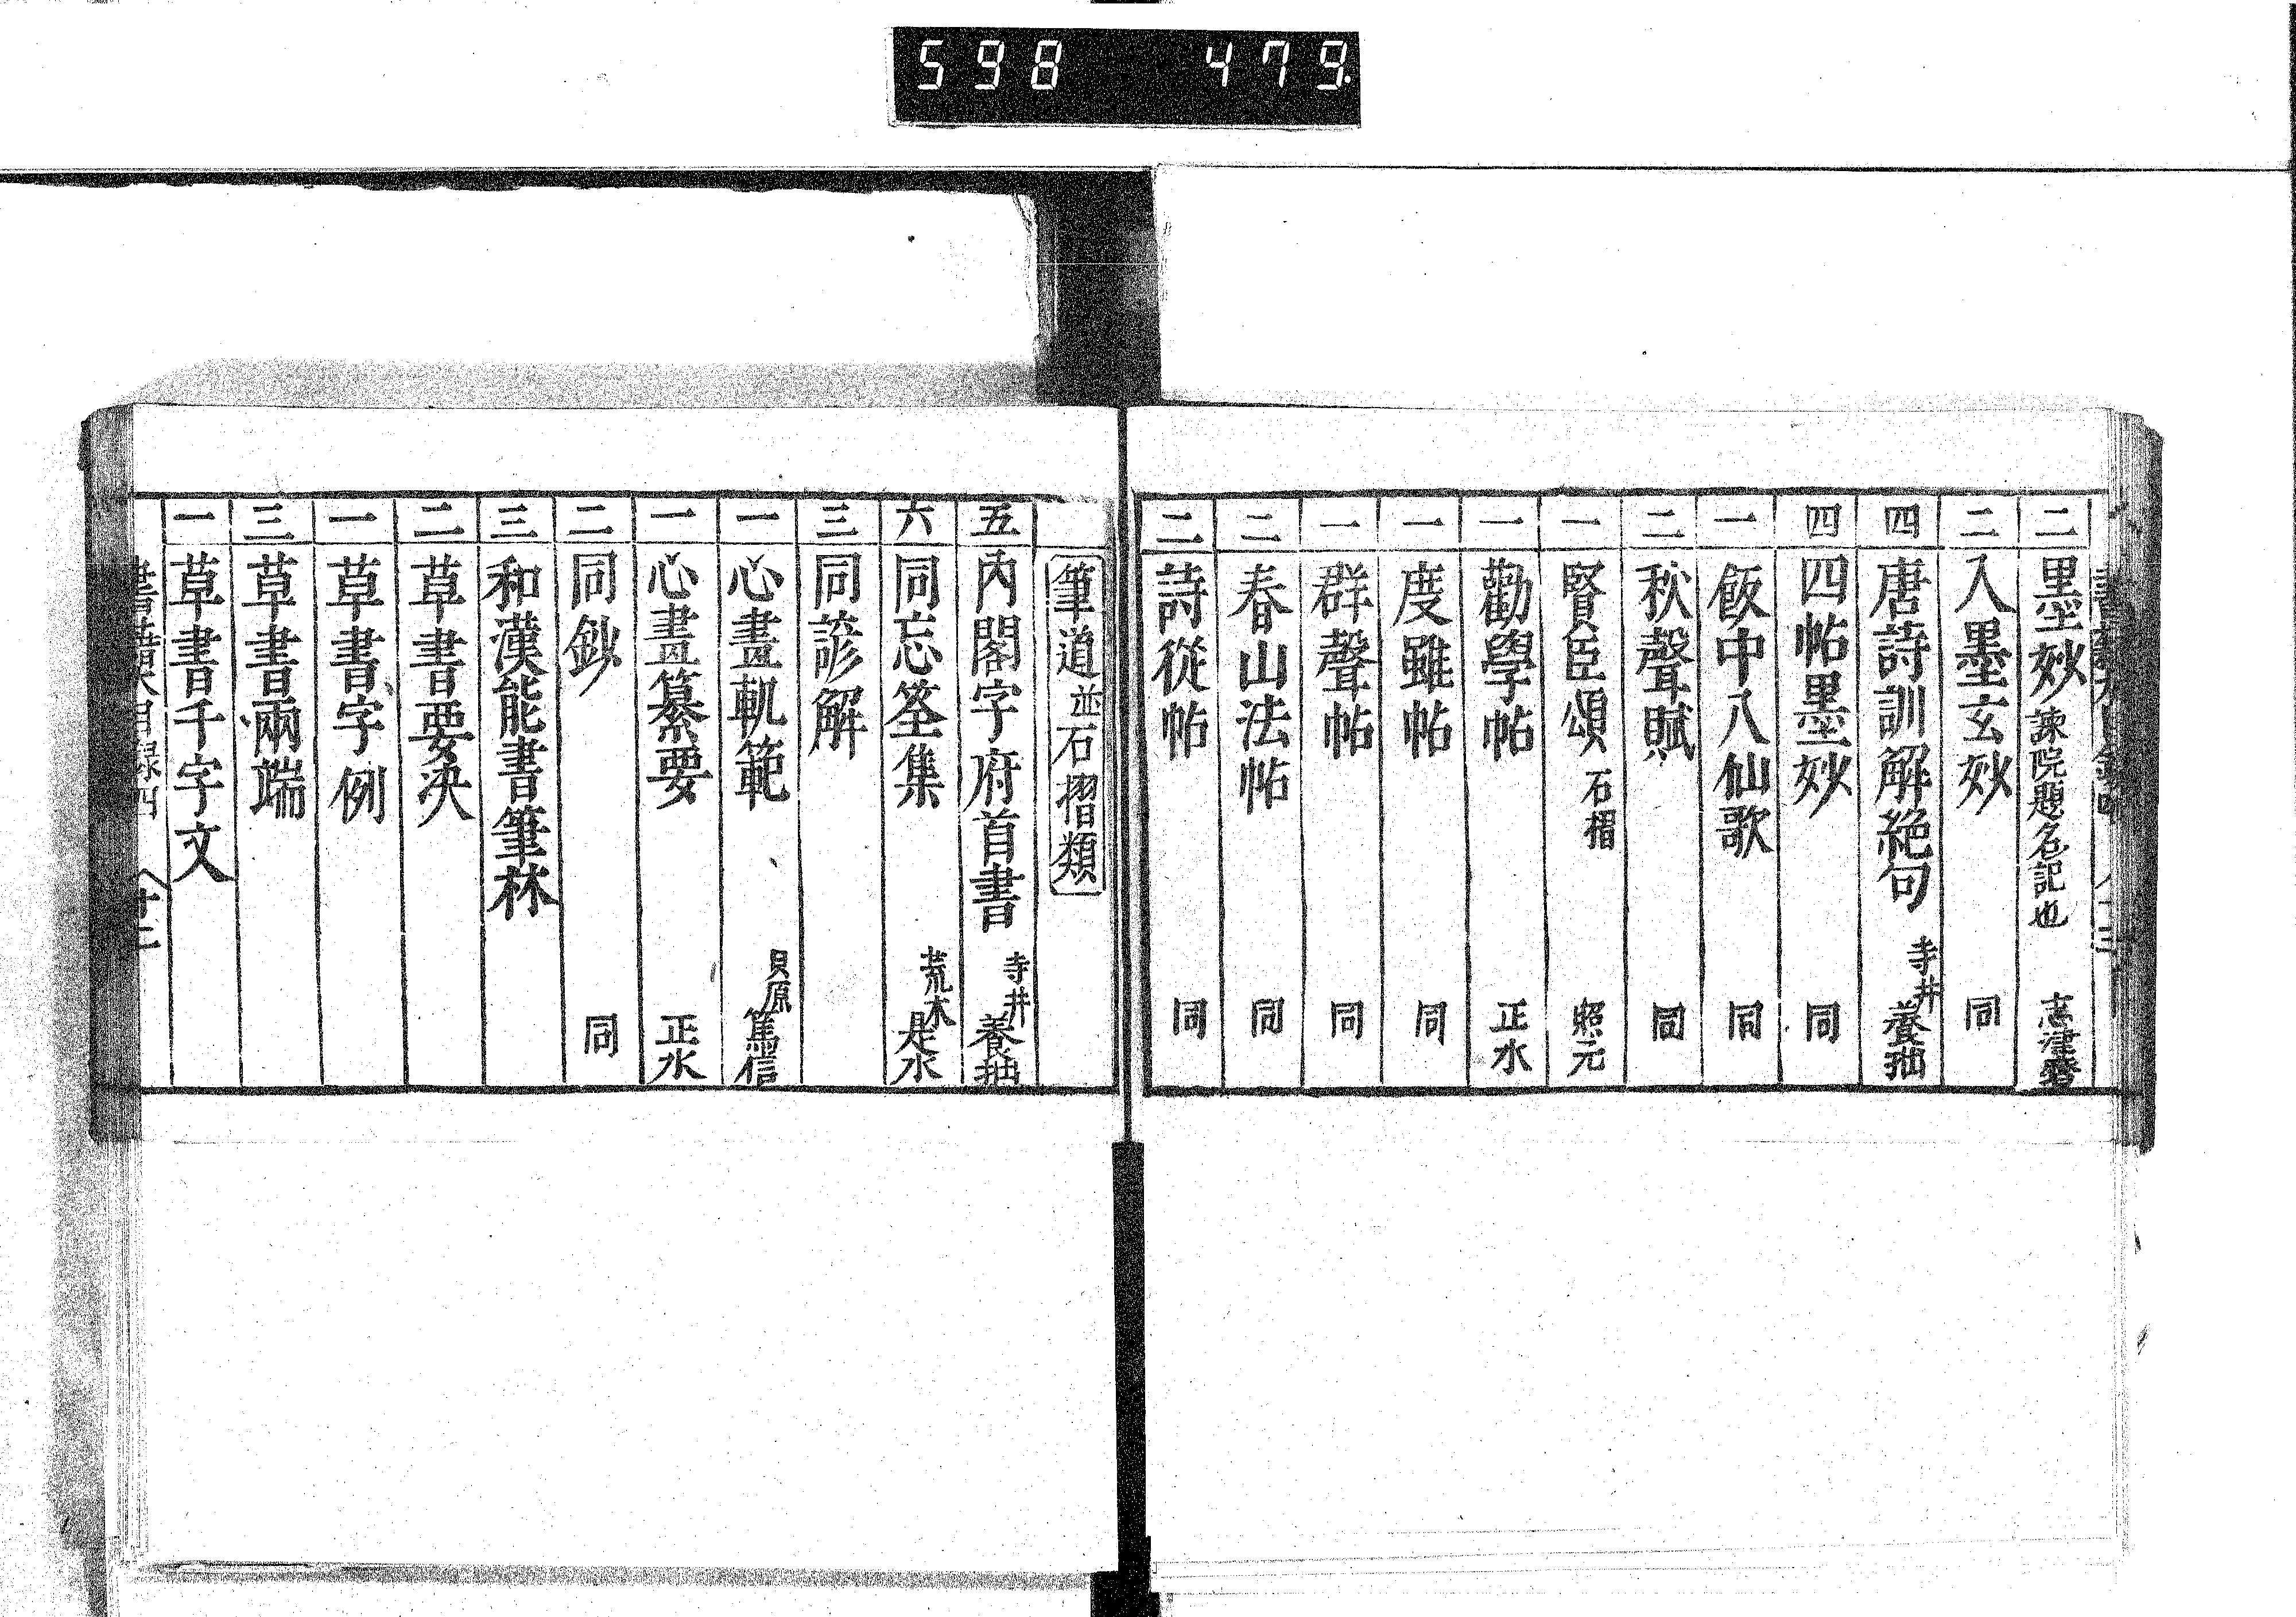 598 479.
二 墨妙 諫院題名記也 志津磨
二 入墨玄妙 同
四 唐詩訓解絶句 寺井養拙
四 四帖墨妙 同
一 飯中八仙歌 同
二 秋聲賦 同
一 賢臣頌 石摺 照元
一 勸學帖 正水
一 度雖帖 同
一 群聲帖 同
二 春山法帖 同
二 詩從帖 同
筆道並石摺類
五 内閣字府首書 寺井養拙
六 同忘筌集 荒木是水
三 同諺解
一 心畫軌範 貝原篤信
一 心畫纂要 正水
二 同鈔 同
三 和漢能書筆林
二 草書要決
一 草書字例
三 草書兩端
一 草書千字文
書籍目録四 十三